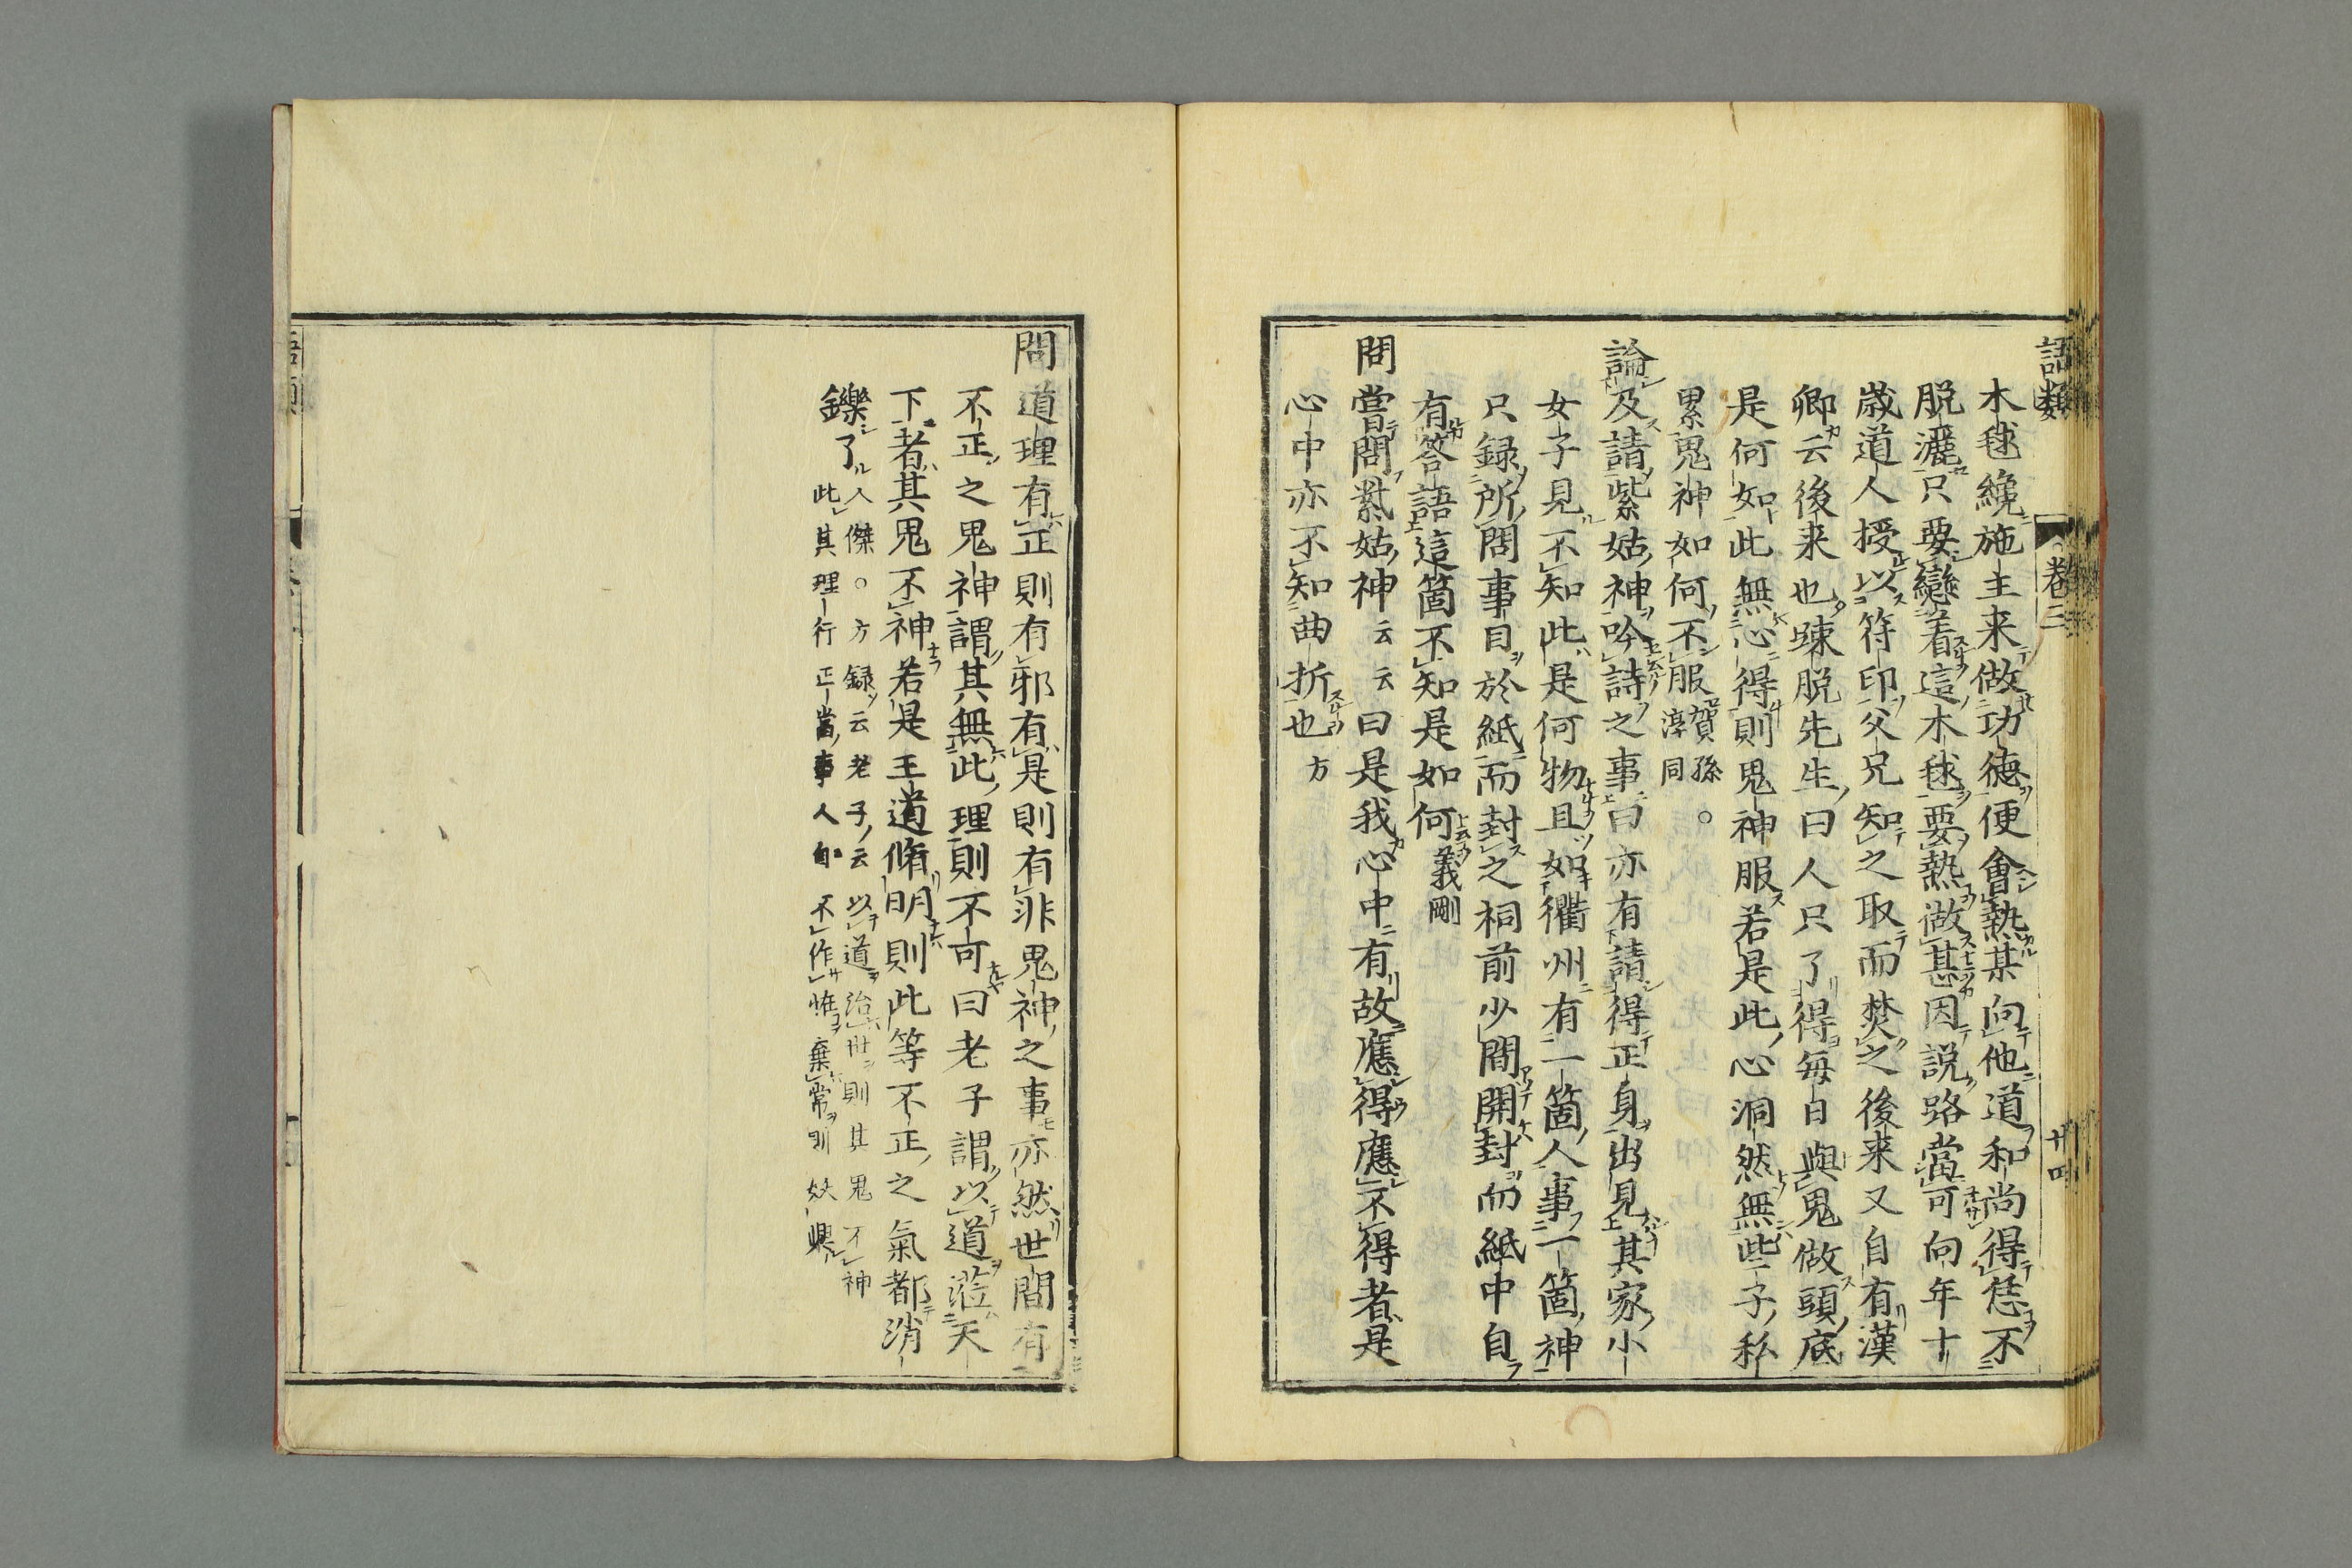 語類
卷三
廿四
木毬纔施主来做功德便會熱某向他道和尚得恁不
脱灑只要戀着這木毬要熱做甚因説路當可向年十
歲道人授以符印父兄知之取而焚之後来又自有漢
卿云後来也踈脱先生曰人只了得每日與鬼做頭底
是何如此無心得則鬼神服若是此心洞然無些子私
累鬼神如何不服賀孫。
淳同
論及請紫姑神吟詩之事曰亦有請得正身出見其家小
女子見不知此是何物且如衢州有一箇人事一箇神
只録所問事目於紙而封之祠前少間開封而紙中自
有答語這箇不知是如何義剛
問嘗問紫姑神云云曰是我心中有故應得應不得者是
心中亦不知曲折也方
問道理有正則有邪有是則有非鬼神之事亦然世間有
不正之鬼神謂其無此理則不可曰老子謂以道蒞天
下者其鬼不神若是王道脩明則此等不正之氣都消
鑠了人傑。方録云老子云以道治世則其鬼不神
此其理行正當事人自不作惟棄常則妖興